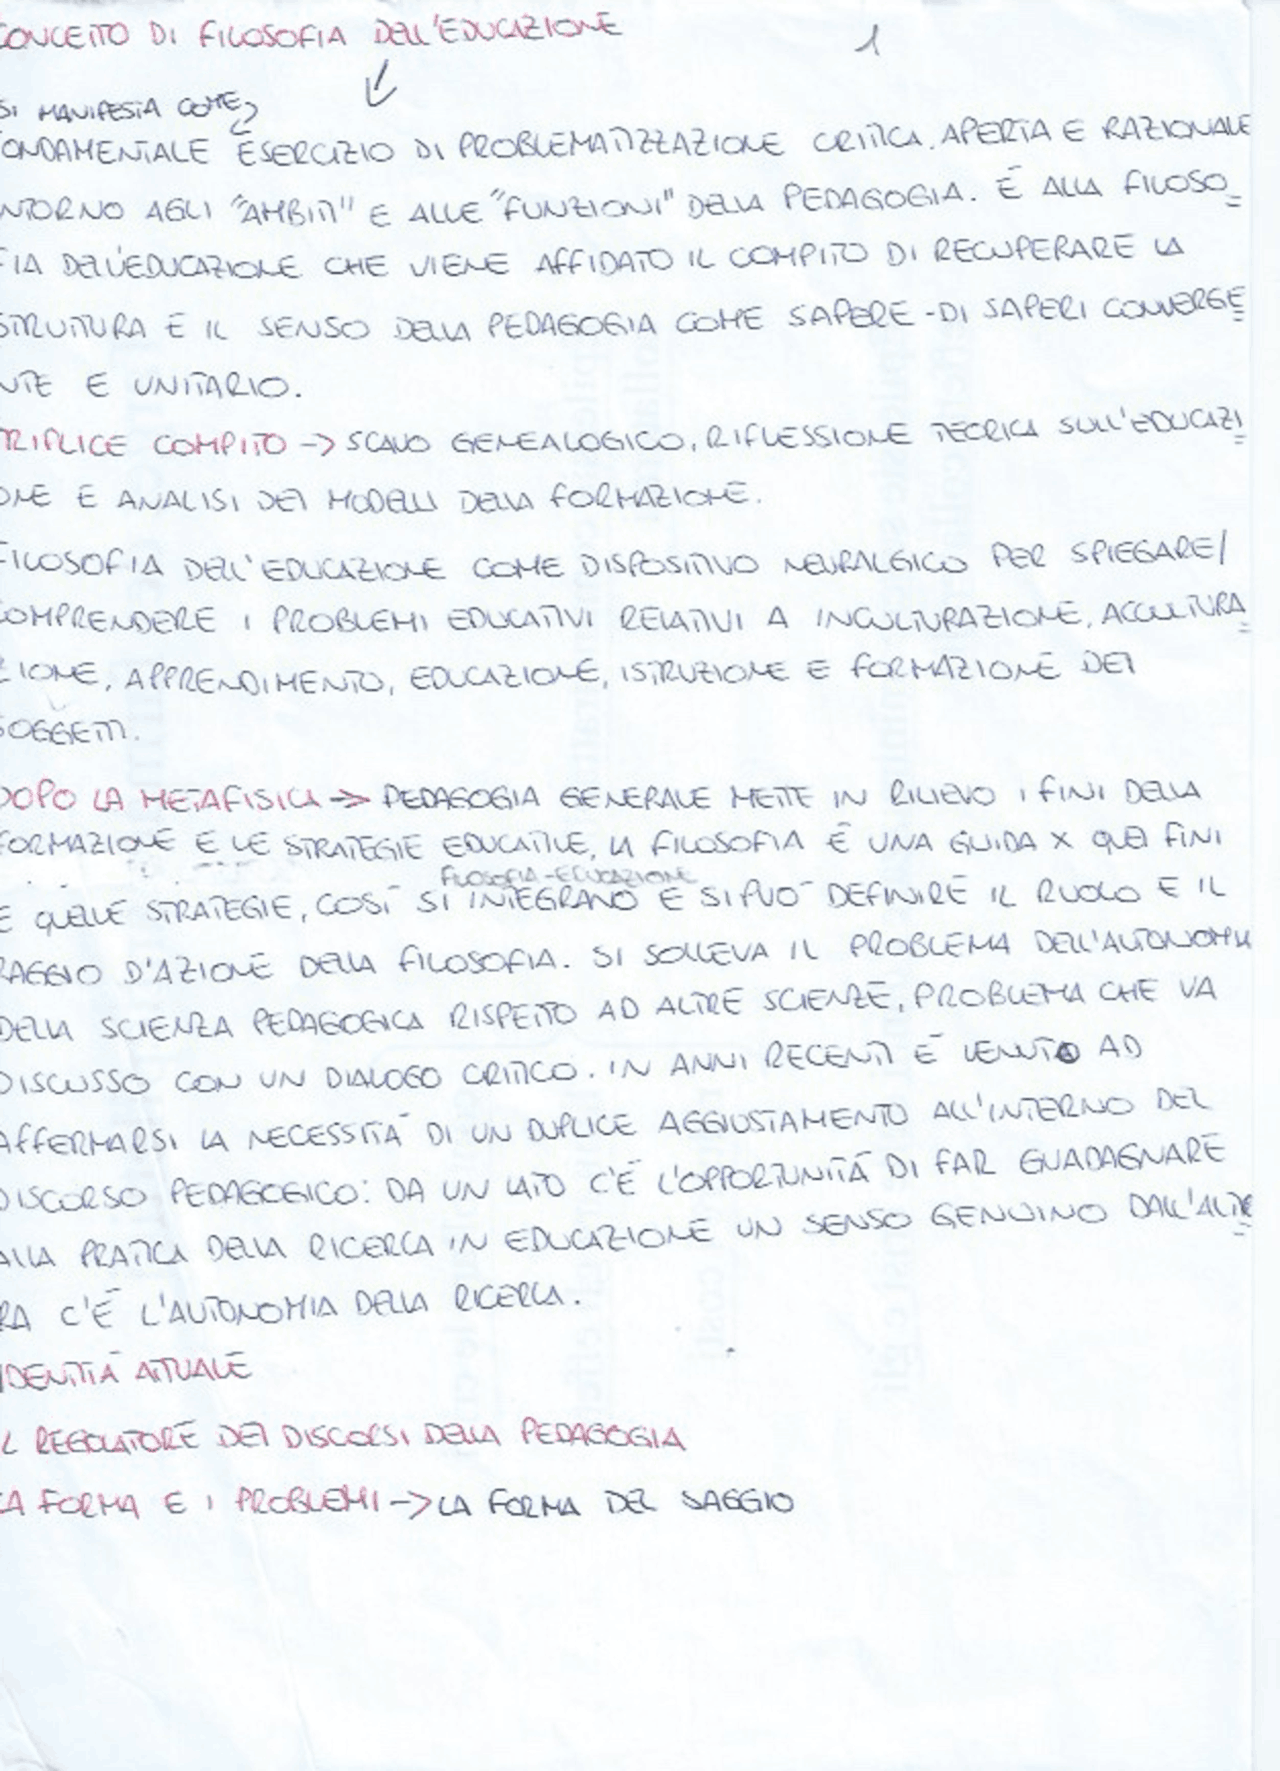 CONCETTO DI FILOSOFIA DELL'EDUCAZIONE 1
SI MANIFESTA COME
FONDAMENTALE ESERCIZIO DI PROBLEMATIZZAZIONE CRITICA, APERTA E RAZIONALE
INTORNO AGLI "AMBITI" E ALLE "FUNZIONI" DELLA PEDAGOGIA. È ALLA FILOSO=
FIA DELL'EDUCAZIONE CHE VIENE AFFIDATO IL COMPITO DI RECUPERARE LA
STRUTTURA E IL SENSO DELLA PEDAGOGIA COME SAPERE-DI SAPERI CONVERGE=
NTE E UNITARIO.
TRIPLICE COMPITO -> SCAVO GENEALOGICO, RIFLESSIONE TEORICA SULL'EDUCAZI=
ONE E ANALISI DEI MODELLI DELLA FORMAZIONE.
FILOSOFIA DELL'EDUCAZIONE COME DISPOSITIVO NEVRALGICO PER SPIEGARE/
COMPRENDERE I PROBLEMI EDUCATIVI RELATIVI A INCULTURAZIONE, ACCULTURA=
ZIONE, APPRENDIMENTO, EDUCAZIONE, ISTRUZIONE E FORMAZIONE DEI
SOGGETTI.
DOPO LA METAFISICA -> PEDAGOGIA GENERALE METTE IN RILIEVO I FINI DELLA
FORMAZIONE E LE STRATEGIE EDUCATIVE, LA FILOSOFIA È UNA GUIDA X QUEI FINI
FILOSOFIA-EDUCAZIONE
E QUELLE STRATEGIE, COSÌ SI INTEGRANO E SI PUÒ DEFINIRE IL RUOLO E IL
RAGGIO D'AZIONE DELLA FILOSOFIA. SI SOLLEVA IL PROBLEMA DELL'AUTONOMIA
DELLA SCIENZA PEDAGOGICA RISPETTO AD ALTRE SCIENZE, PROBLEMA CHE VA
DISCUSSO CON UN DIALOGO CRITICO. IN ANNI RECENTI È VENUTO AD
AFFERMARSI LA NECESSITÀ DI UN DUPLICE AGGIUSTAMENTO ALL'INTERNO DEL
DISCORSO PEDAGOGICO: DA UN LATO C'È L'OPPORTUNITÀ DI FAR GUADAGNARE
ALLA PRATICA DELLA RICERCA IN EDUCAZIONE UN SENSO GENUINO DALL'ALT=
RA C'È L'AUTONOMIA DELLA RICERCA.
IDENTITÀ ATTUALE
IL REGOLATORE DEI DISCORSI DELLA PEDAGOGIA
LA FORMA E I PROBLEMI -> LA FORMA DEL SAGGIO